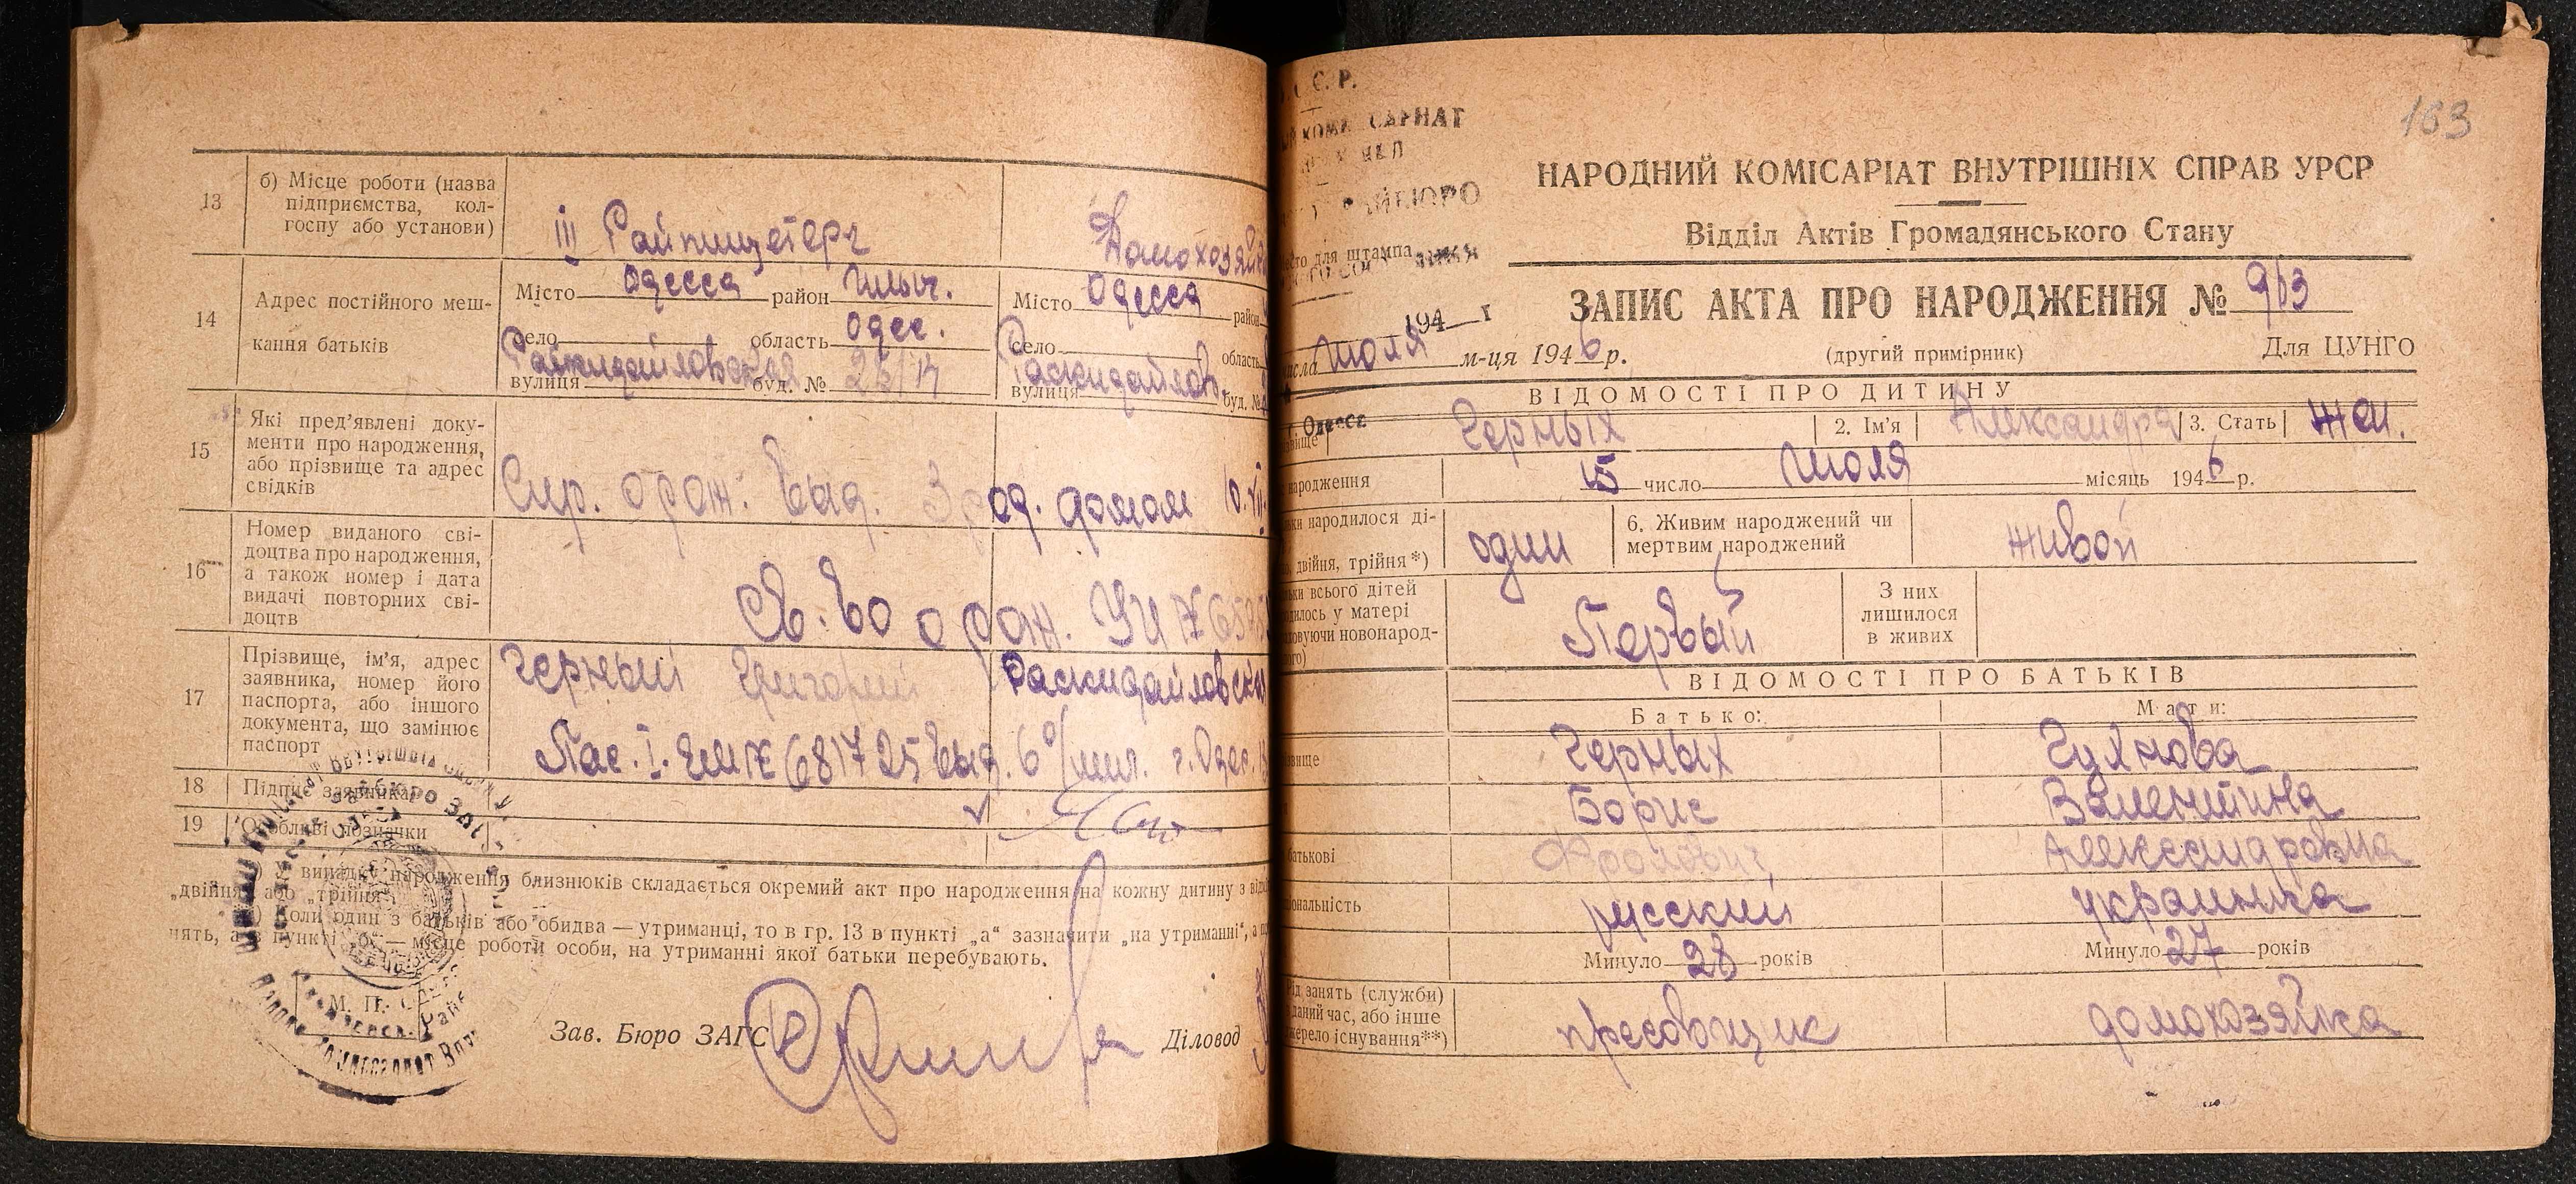 13
б) Місце роботи (назва
підприємства, кол-
госпу або установи)
III Райпищеторг
Домохозяй
14
Адрес постійного меш-
кання батьків
Місто Одесса район Ильич.
село область Одес.
вулиця Раскидайловская буд. №
Місто Одесса район
село область
вулиця Раскидайлов. буд. №
15
Які пред'явлені доку-
менти про народження,
або прізвище та адрес
свідків
Спр. о рож. выд. 3 род. домом
16
Номер виданого сві-
доцтва про народження,
а також номер і дата
видачі повторних сві-
доцтв
Св. во о рож.
17
Прізвище, ім'я, адрес
заявника, номер його
паспорта, або іншого
документа, що замінює
паспорт
Черный Григорий Раскидайловская
Пас. 681725 выд. 6 о/мил. г. Одес.
18
Підпис заявника
19
Особливі позначки
У випадку народження близнюків складається окремий акт про народження на кожну дитину з
„двійня" або „трійня".
Коли один з батьків або обидва — утриманці, то в гр. 13 в пункті „а" зазначити „на утриманні", а
нять, а в пункті „б" — місце роботи особи, на утриманні якої батьки перебувають.
М. П.
Зав. Бюро ЗАГС
Діловод
163
Є. Р.
НАРОДНИЙ КОМІСАРІАТ ВНУТРІШНІХ СПРАВ УРСР
Відділ Актів Громадянського Стану
для штампа
194 г
ЗАПИС АКТА ПРО НАРОДЖЕННЯ № 963
Июля м-ця 1946 р.
(другий примірник)
Для ЦУНГО
ВІДОМОСТІ ПРО ДИТИНУ
г. Одесса
Черных
2. Ім'я
Александра
3. Стать
жен.
народження
15 число Июля місяць 1946 р.
народилося ді-
двійня, трійня*)
один
6. Живим народжений чи
мертвим народжений
живой
всього дітей
у матері
новонарод-
Первый
З них
лишилося
в живих
ВІДОМОСТІ ПРО БАТЬКІВ
Батько:
Мати:
Черных
Гулнова
Борис
Валентина
батькові
Фролович
Александровна
русский
украинка
Минуло 28 років
Минуло 27 років
Рід занять (служби)
даний час, або інше
джерело існування**)
прессовщик
домохозяйка